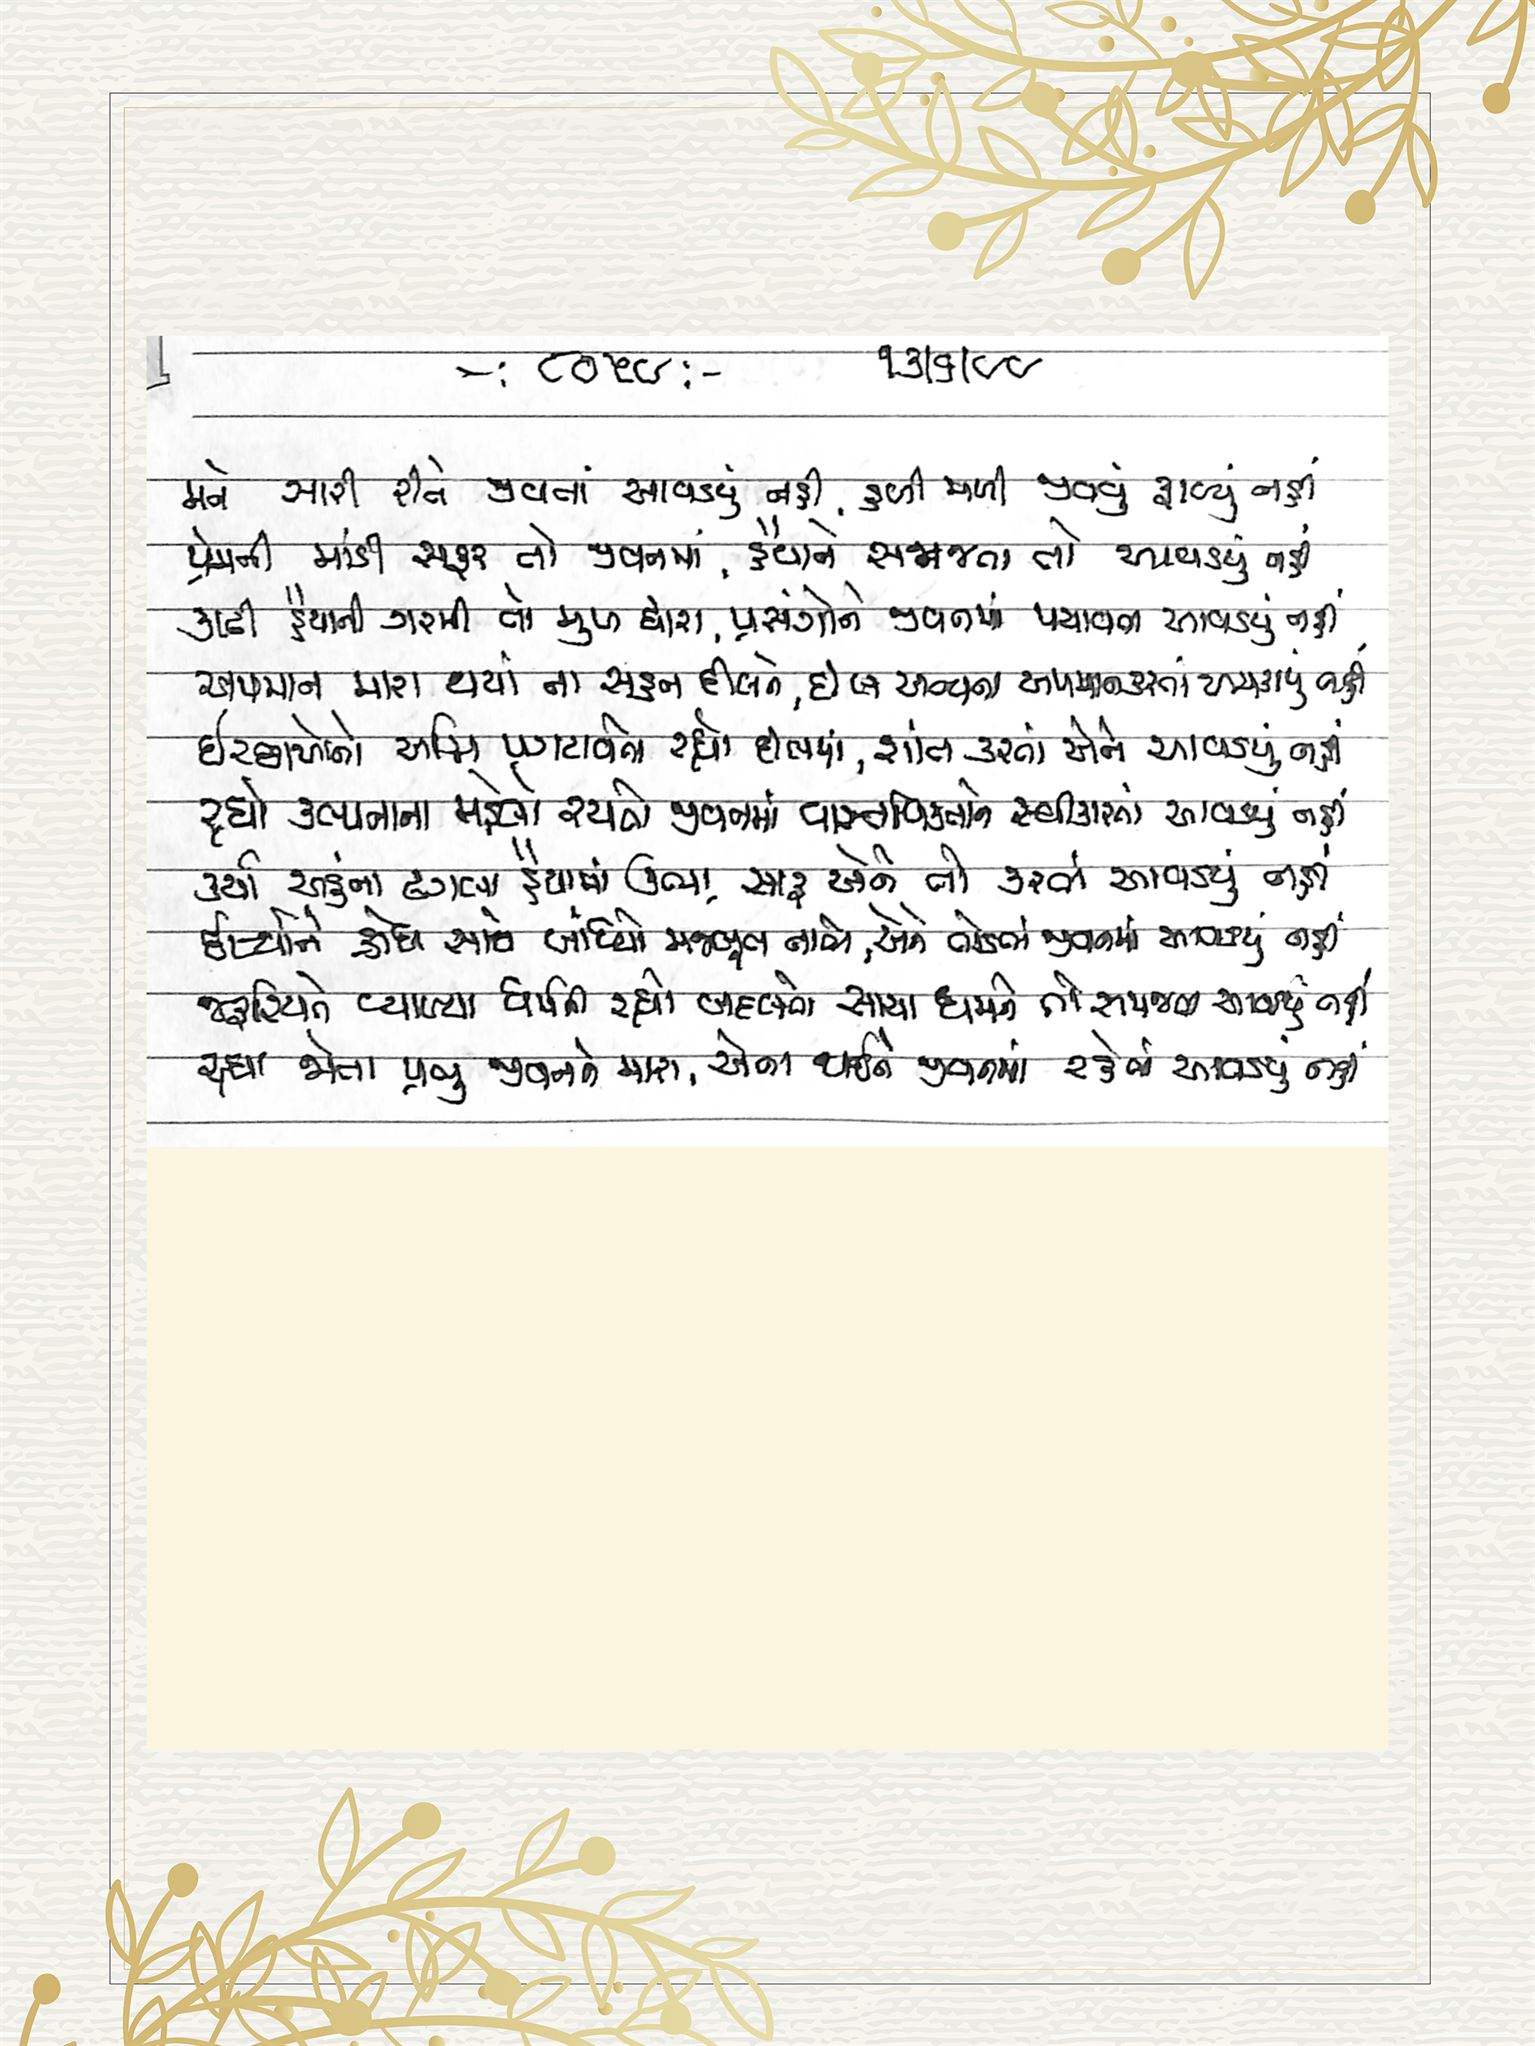 -: ૮૦૫૯ :- ૧૩/૬/૯૯
મને સારી રીતે જીવતાં આવડયું નહીં, હળી મળી જીવવું ફાવ્યું નહીં
પ્રેમની માંડી સફર તો જીવનમાં, હૈયાને સમજતા તો આવડયું નહીં
કાઢી હૈયાની ગરમી તો મુખ દ્વારા, પ્રસંગોને જીવનમાં પચાવતા આવડયું નહીં
અપમાન મારા થયાં ના સહન દીલને, અન્યના અપમાન કરતાં અચકાયું નહીં
ઈર્ષ્યાઓનો અગ્નિ પ્રગટાવતો રહ્યો દીલમાં, શાંત કરતાં એને આવડયું નહીં
રહ્યો કલ્પનાના મહેલો રચતો જીવનમાં વાસ્તવિકતાને સ્વીકારતાં આવડયું નહીં
કર્યા અહંના ઢગલા હૈયામાં ઊભા, સાફ એને તો કરતાં આવડયું નહીં
ઈર્ષ્યાને ક્રોધ સાથે બાંધ્યો મજબૂત નાતો, એને તોડતાં જીવનમાં આવડયું નહીં
જરૂરિયાતે વ્યાખ્યા ધર્મની રહ્યો બદલતો સાચા ધર્મને તો સમજતા આવડયું નહીં
રહ્યા જોતા પ્રભુ જીવનને મારા, એના થઈને જીવનમાં રહેતાં આવડયું નહીં